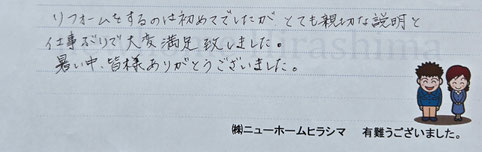 リフォームをするのは初めてでしたが とても親切な説明と
仕事ぶりで大変満足致しました。
暑い中、皆様ありがとうございました。
㈱ニューホームヒラシマ 有難うございました。